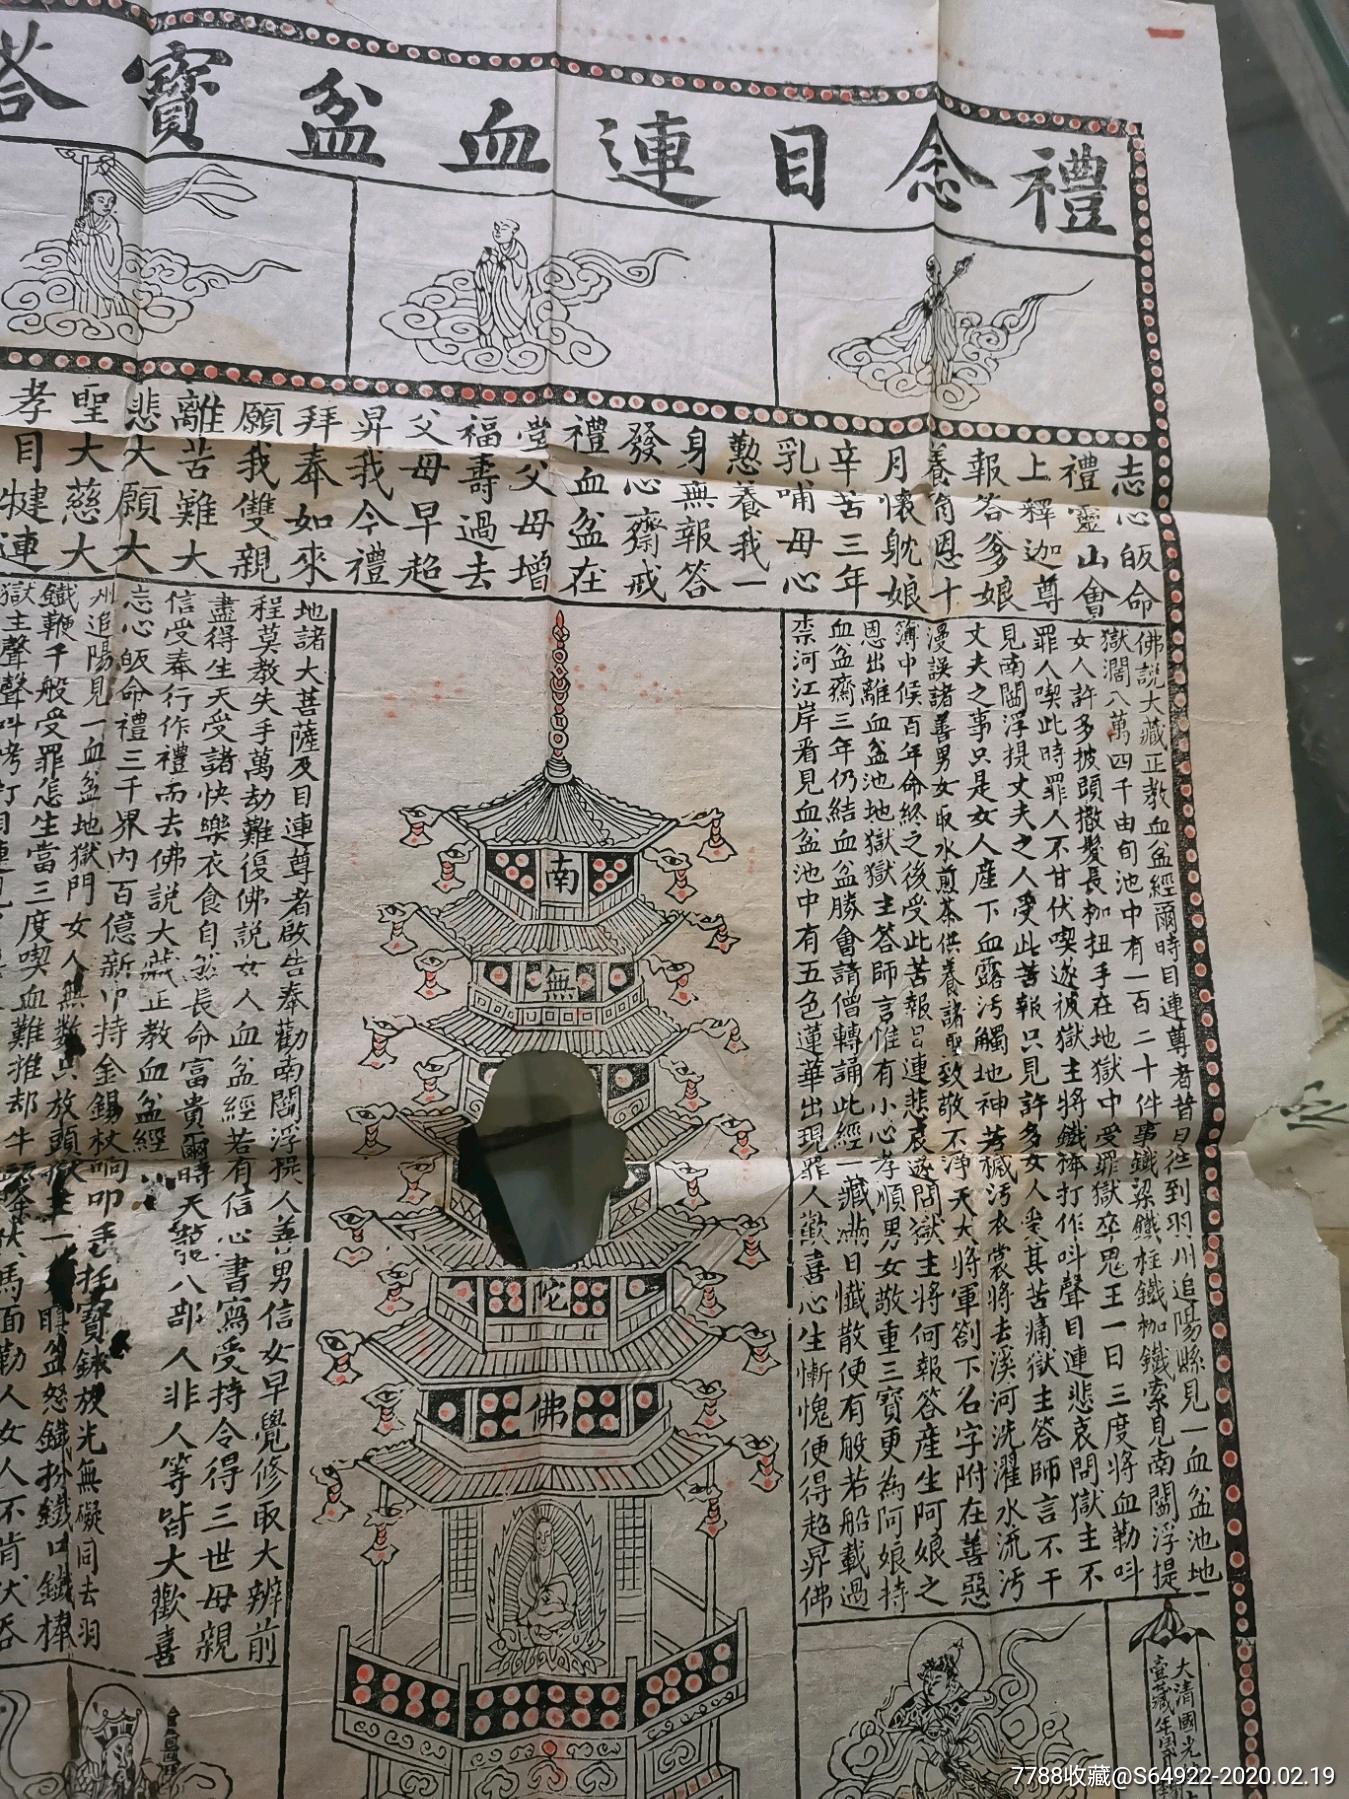 禮念目連血盆寶塔
志心皈命
禮靈山會
上釋迦尊
報答爹娘
養育恩十
月懷躭娘
辛苦三年
乳哺母心
懃養我一
身無報答
發心齋戒
禮血盆在
堂父母增
福壽過去
父母早超
昇我今禮
拜奉如來
願我雙親
離苦難大
悲大願大
聖大慈大
孝目犍連
佛説大藏正教血盆經爾時目連尊者昔日往到羽州追陽縣見一血盆池地
獄濶八萬四千由旬池中有一百二十件事鐵梁鐵柱鐵枷鐵索見南閻浮提
女人許多披頭撒髮長枷扭手在地獄中受罪獄卒鬼王一日三度將血勒呌
罪人喫此時罪人不甘伏喫遂被獄主將鐵棒打作呌聲目連悲哀問獄主不
見南閻浮提丈夫之人受此苦報只見許多女人受其苦痛獄主答師言不干
丈夫之事只是女人産下血露汚觸地神若穢汚衣裳將去溪河洗濯水流汚
漫誤諸善男女取水煎茶供養諸聖致敬不淨天大將軍劄下名字附在善惡
簿中候百年命終之後受此苦報目連悲哀遂問獄主將何報答産生阿娘之
恩出離血盆池地獄獄主答師言惟有小心孝順男女敬重三寶更為阿娘持
血盆齋三年仍結血盆勝會請僧轉誦此經一藏滿日懺散便有般若船載過
柰河江岸看見血盆池中有五色蓮華出現罪人歡喜心生慚愧便得超昇佛
南
無
陀
佛
地諸大菩薩及目連尊者啟告奉勸南閻浮提人善男信女早覺修取大辨前
程莫教失手萬劫難復佛説女人血盆經若有信心書寫受持令得三世母親
盡得生天受諸快樂衣食自然長命富貴爾時天龍八部人非人等皆大歡喜
信受奉行作禮而去佛説大藏正教血盆經
志心皈命禮三千界內百億新㐧持金錫杖响叩手托寶鉢放光無礙同去羽
州追陽見一血盆地獄門女人無数
鐵鞭千般受罪怎生當三度喫血難推却牛
大清國光
壹藏年
7788收藏@S64922-2020.02.19